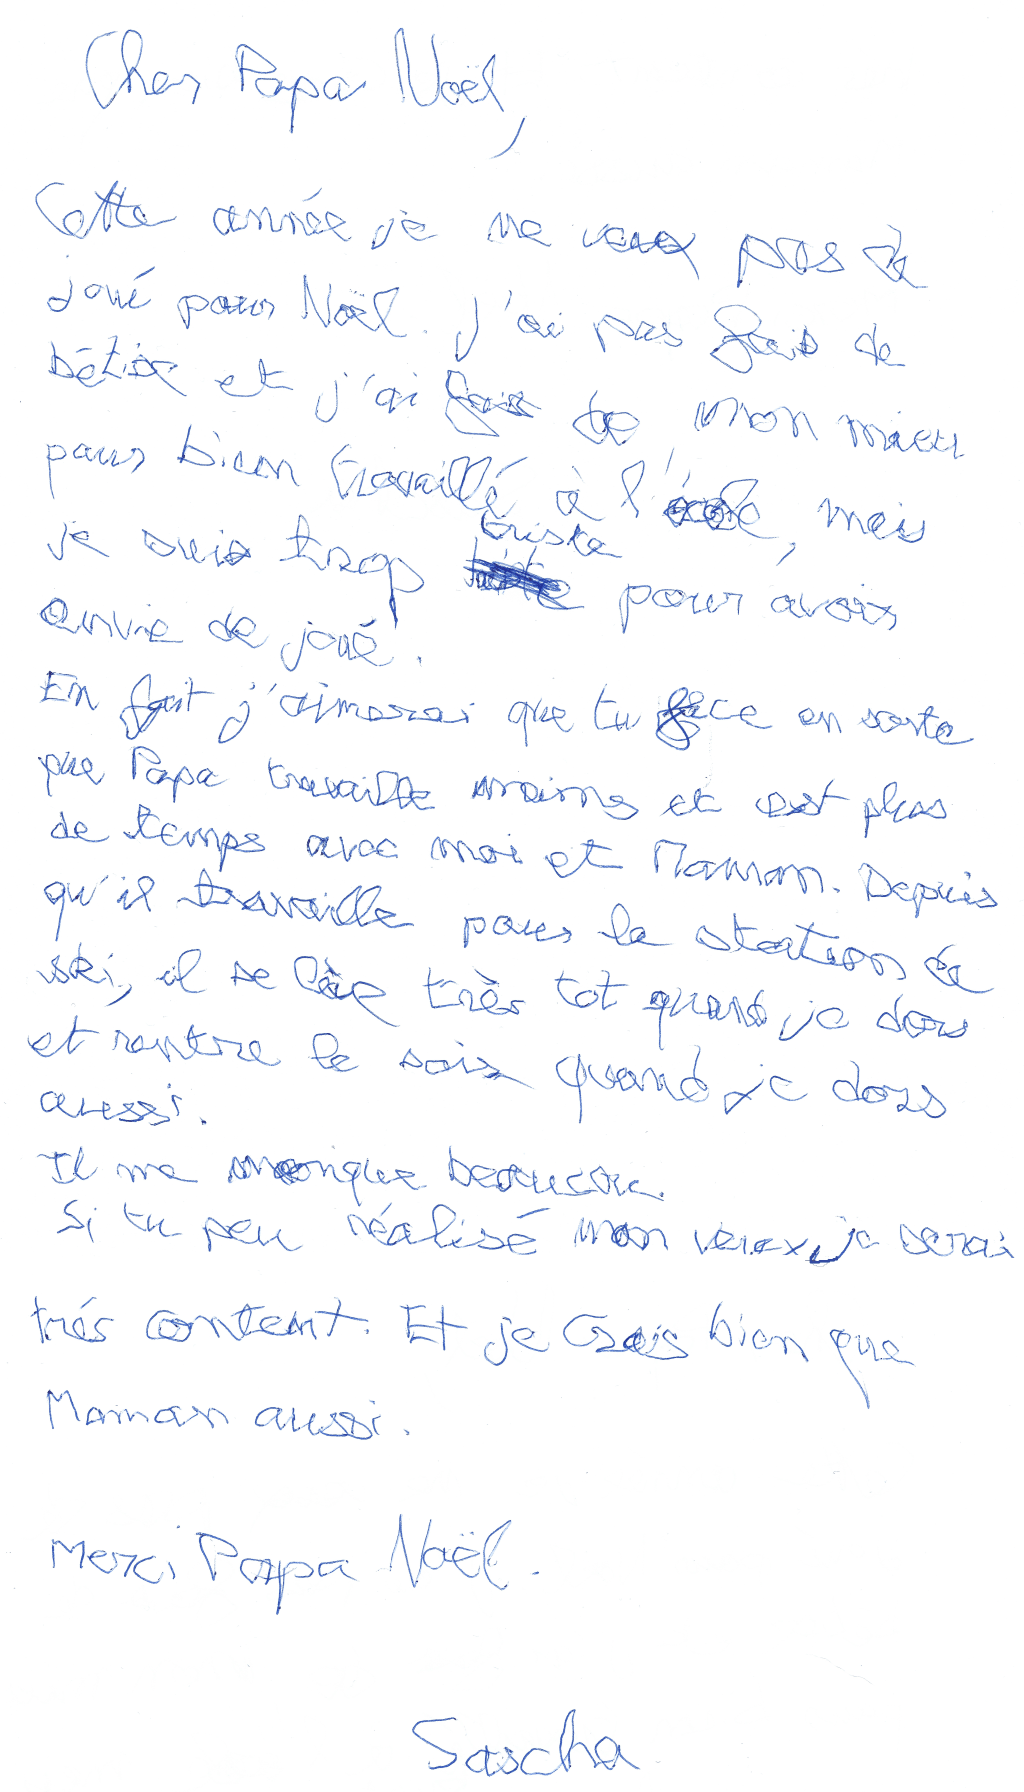 Cher Papa Noël,
Cette année je ne veux pas de
joué pour Noël. J'ai pas fais de
bétise et j'ai fait de mon mieu
pour bien travaillé à l'école, mais
je suis trop triste pour avoir
envie de joué.
En fait j'aimerai que tu face en sorte
que Papa travaille moins et est plus
de temps avec moi et Maman. Depuis
qu'il travaille pour la station de
ski, il se lève très tot quand je dors
et rentre le soir quand je dors
aussi.
Il me manque beaucou.
Si tu peu réalisé mon veux, je serai
trés content. Et je crois bien que
Maman aussi.
Merci Papa Noël.
Sascha